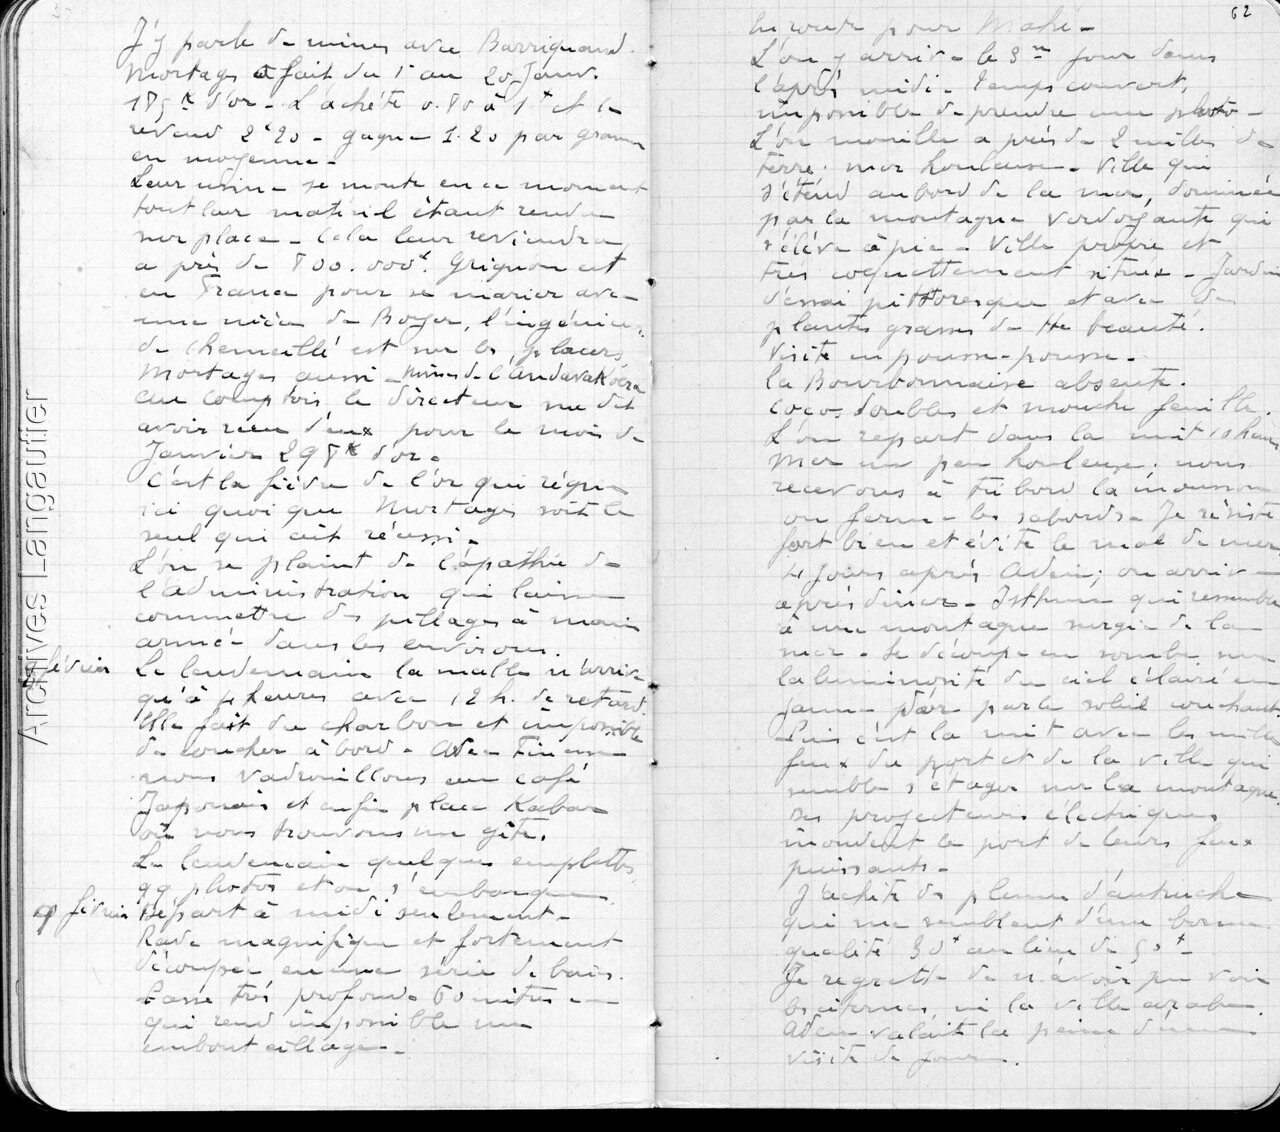 J'y parle de mines avec Barriquand.
Mortages a fait du 1er au 20 Janv.
185 k d'or. L'achète 0.80 à 1f et le
revend 2f20 - gagne 1.20 par gramme
en moyenne.
Leur usine se monte en ce moment
tout leur matériel étant rendu
sur place - Cela leur reviendra
a près de 800.000f. Grignon est
en France pour se marier avec
une nièce de Boyer, l'ingénieur
de Chemeillé est sur les placers
Mortages aussi - Mines de l'Andavakoera
au comptoir le directeur me dit
avoir reçu d'eux pour le mois de
Janvier 298k d'or.
C'est la fièvre de l'or qui règne
ici quoi que Mortages soit le
seul qui ait réussi.
L'on se plaint de l'apathie de
l'administration qui laisse
commettre des pillages à main
armée dans les environs.
février Le lendemain la malle n'arrive
qu'à heures avec 12 h. de retard.
Elle fait du charbon et impossible
de coucher à bord. Avec
nous vadrouillons au café
Japonais et enfin place Kabar
où nous trouvons un gîte.
Le lendemain quelques emplettes
qq photos et on s'embarque.
9 février Départ à midi seulement.
Rade magnifique et fortement
découpée en une série de baies.
Passe très profonde 60 mètres
qui rend impossible un
embouteillage.
62
en route pour Mahé -
L'on y arrive le 3me jour dans
l'après midi. Temps couvert,
impossible de prendre une photo -
L'on mouille a près de 2 milles de
terre. mer houleuse. Ville qui
s'étend au bord de la mer, dominée
par la montagne verdoyante qui
s'élève à pic. Ville propre et
très coquettement située - Jardin
d'essai pittoresque et avec des
plantes grasses de tte beauté.
Visite en pousse-pousse.
la Bourbonnaise absente.
Coco-doubles et mouche feuille.
L'on repart dans la nuit 10 heures
Mer un peu houleuse. nous
recevons à tribord la mousson
on ferme les sabords. Je résiste
fort bien et évite le mal de mer
4 Jours après Aden; on arrive
après diner. Isthme qui ressemble
à une montagne surgie de la
mer. Se découpe en sombre sur
la luminosité du ciel éclairé en
jaune d'or par le soleil couchant
Puis c'est la nuit avec les mille
feux du port et de la ville qui
semble s'étager sur la montagne
Des projecteurs électriques
inondent le port de leurs feux
puissants.
J'achète des plumes d'autruche
qui me semblent d'une bonne
qualité 30f au lieu de 50f.
Je regrette de n'avoir pu voir
les citernes, ni la ville arabe.
Aden valait la peine d'une
visite de jour.
Archives Langautier